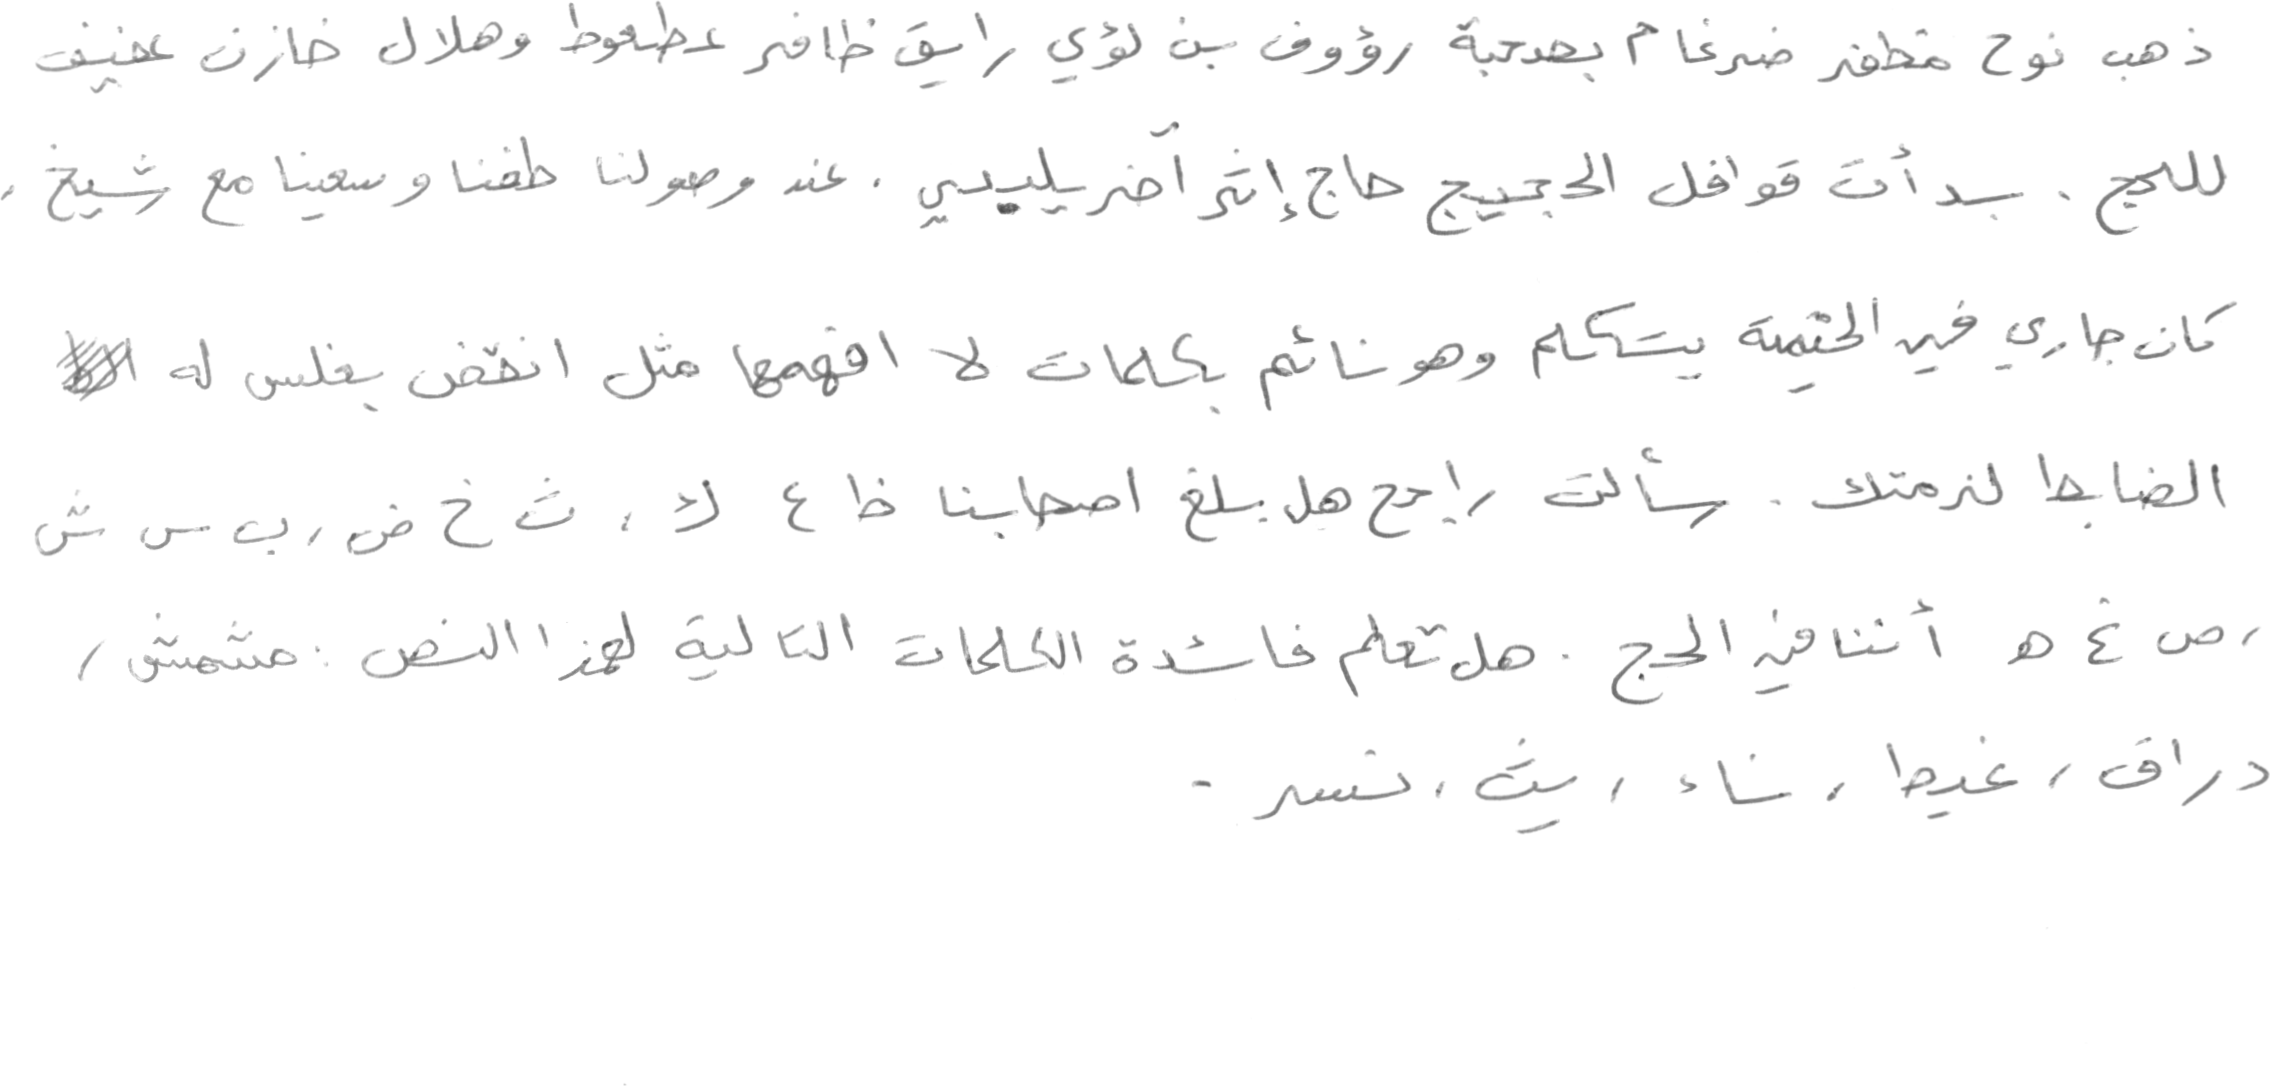 ذهب نوح مظفر ضرغام بصحبة رؤوف بن لؤي رايق ظافر عطعوط وهلال خازن عفيف
للحج . بدأت قوافل الحجيج حاج إثر آخر يلبي . عند وصولنا طفنا وسعينا مع شيخ ،
كان جاري في الخيمة يتكلم وهو نائم بكلمات لا افهمها مثل انقض بغلس له
الضابط لنرمتك . سألت راجح هل بلغ اصحابنا ظ ع ك ، ث خ ض ، ب س ش
، ص غ ه أننا في الحج . هل تعلم فائدة الكلمات التالية لهذا النص : مشمش ،
دراق ، غيط ، ناء ، يث ، نسر -